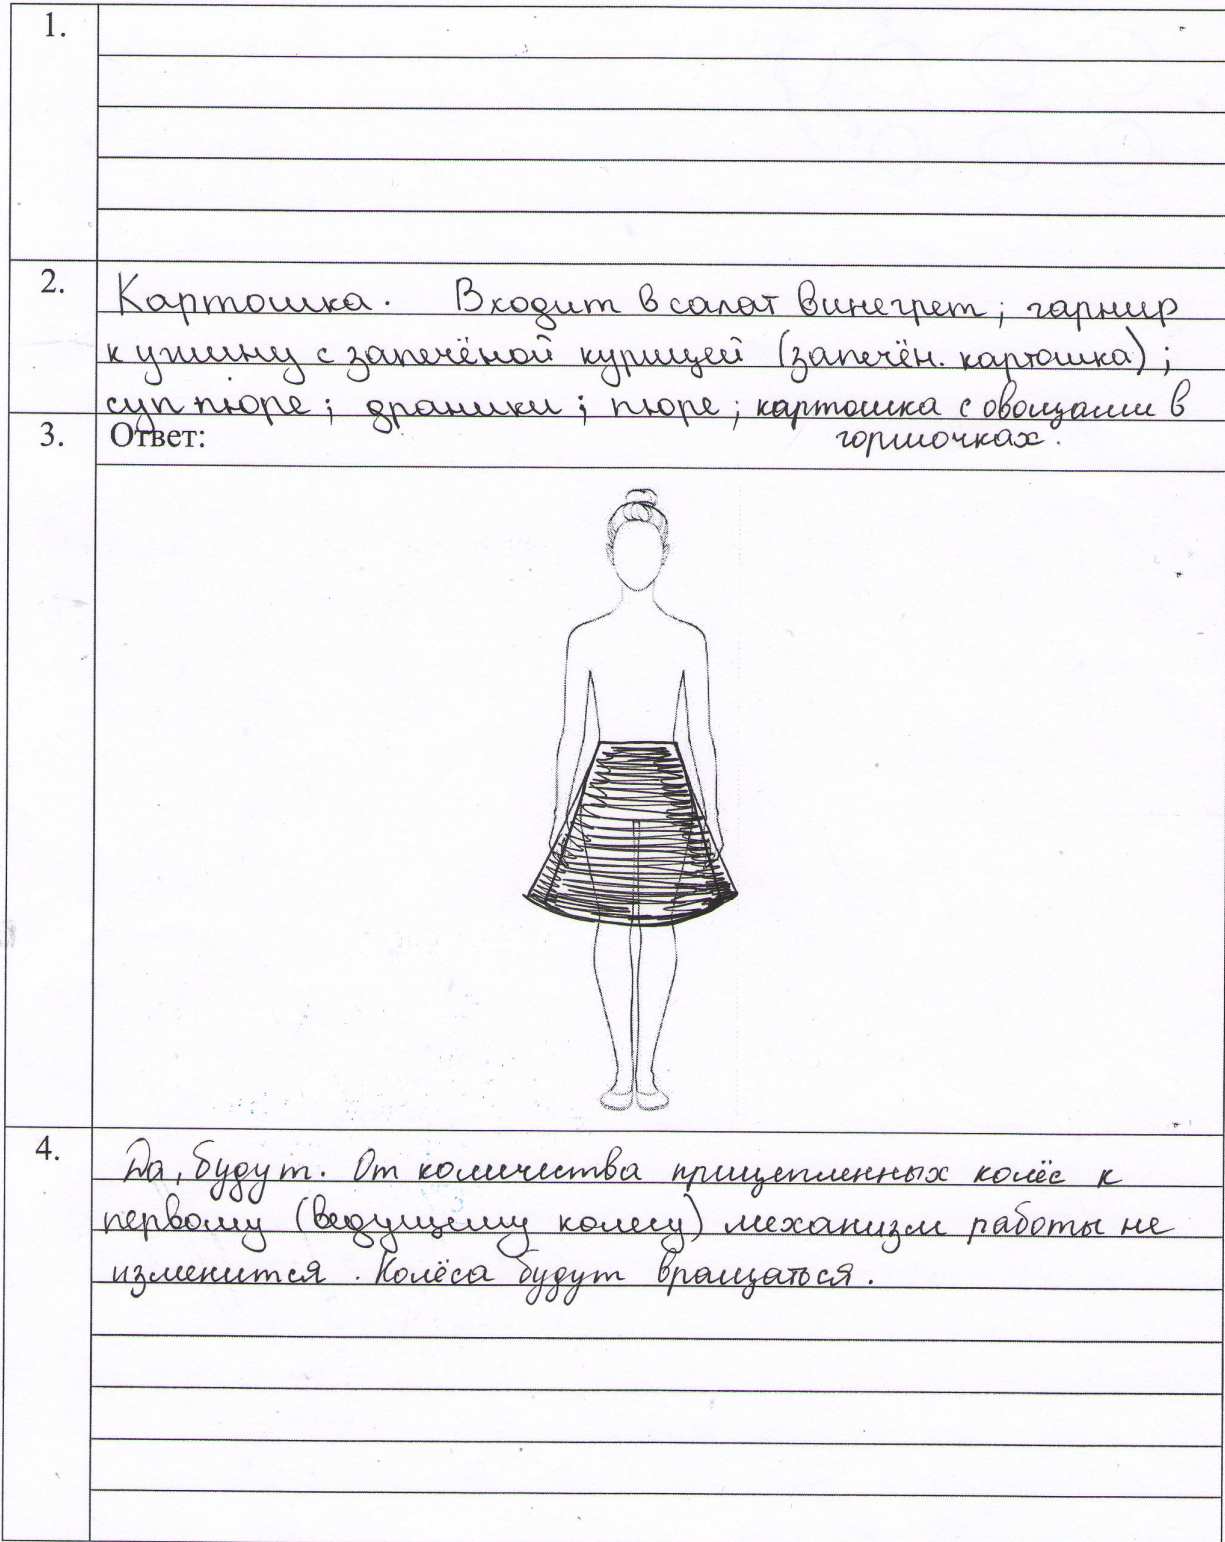 1.
2.
Картошка. Входит в салат винегрет; гарнир
к ужину с запечёной курицей (запечён. картошка);
суп пюре; драники; пюре; картошка с овощами в
горшочках.
3.
Ответ:
4.
Да, будут. От количества прицепленных колёс к
первому (ведущему колесу) механизм работы не
изменится. Колёса будут вращаться.